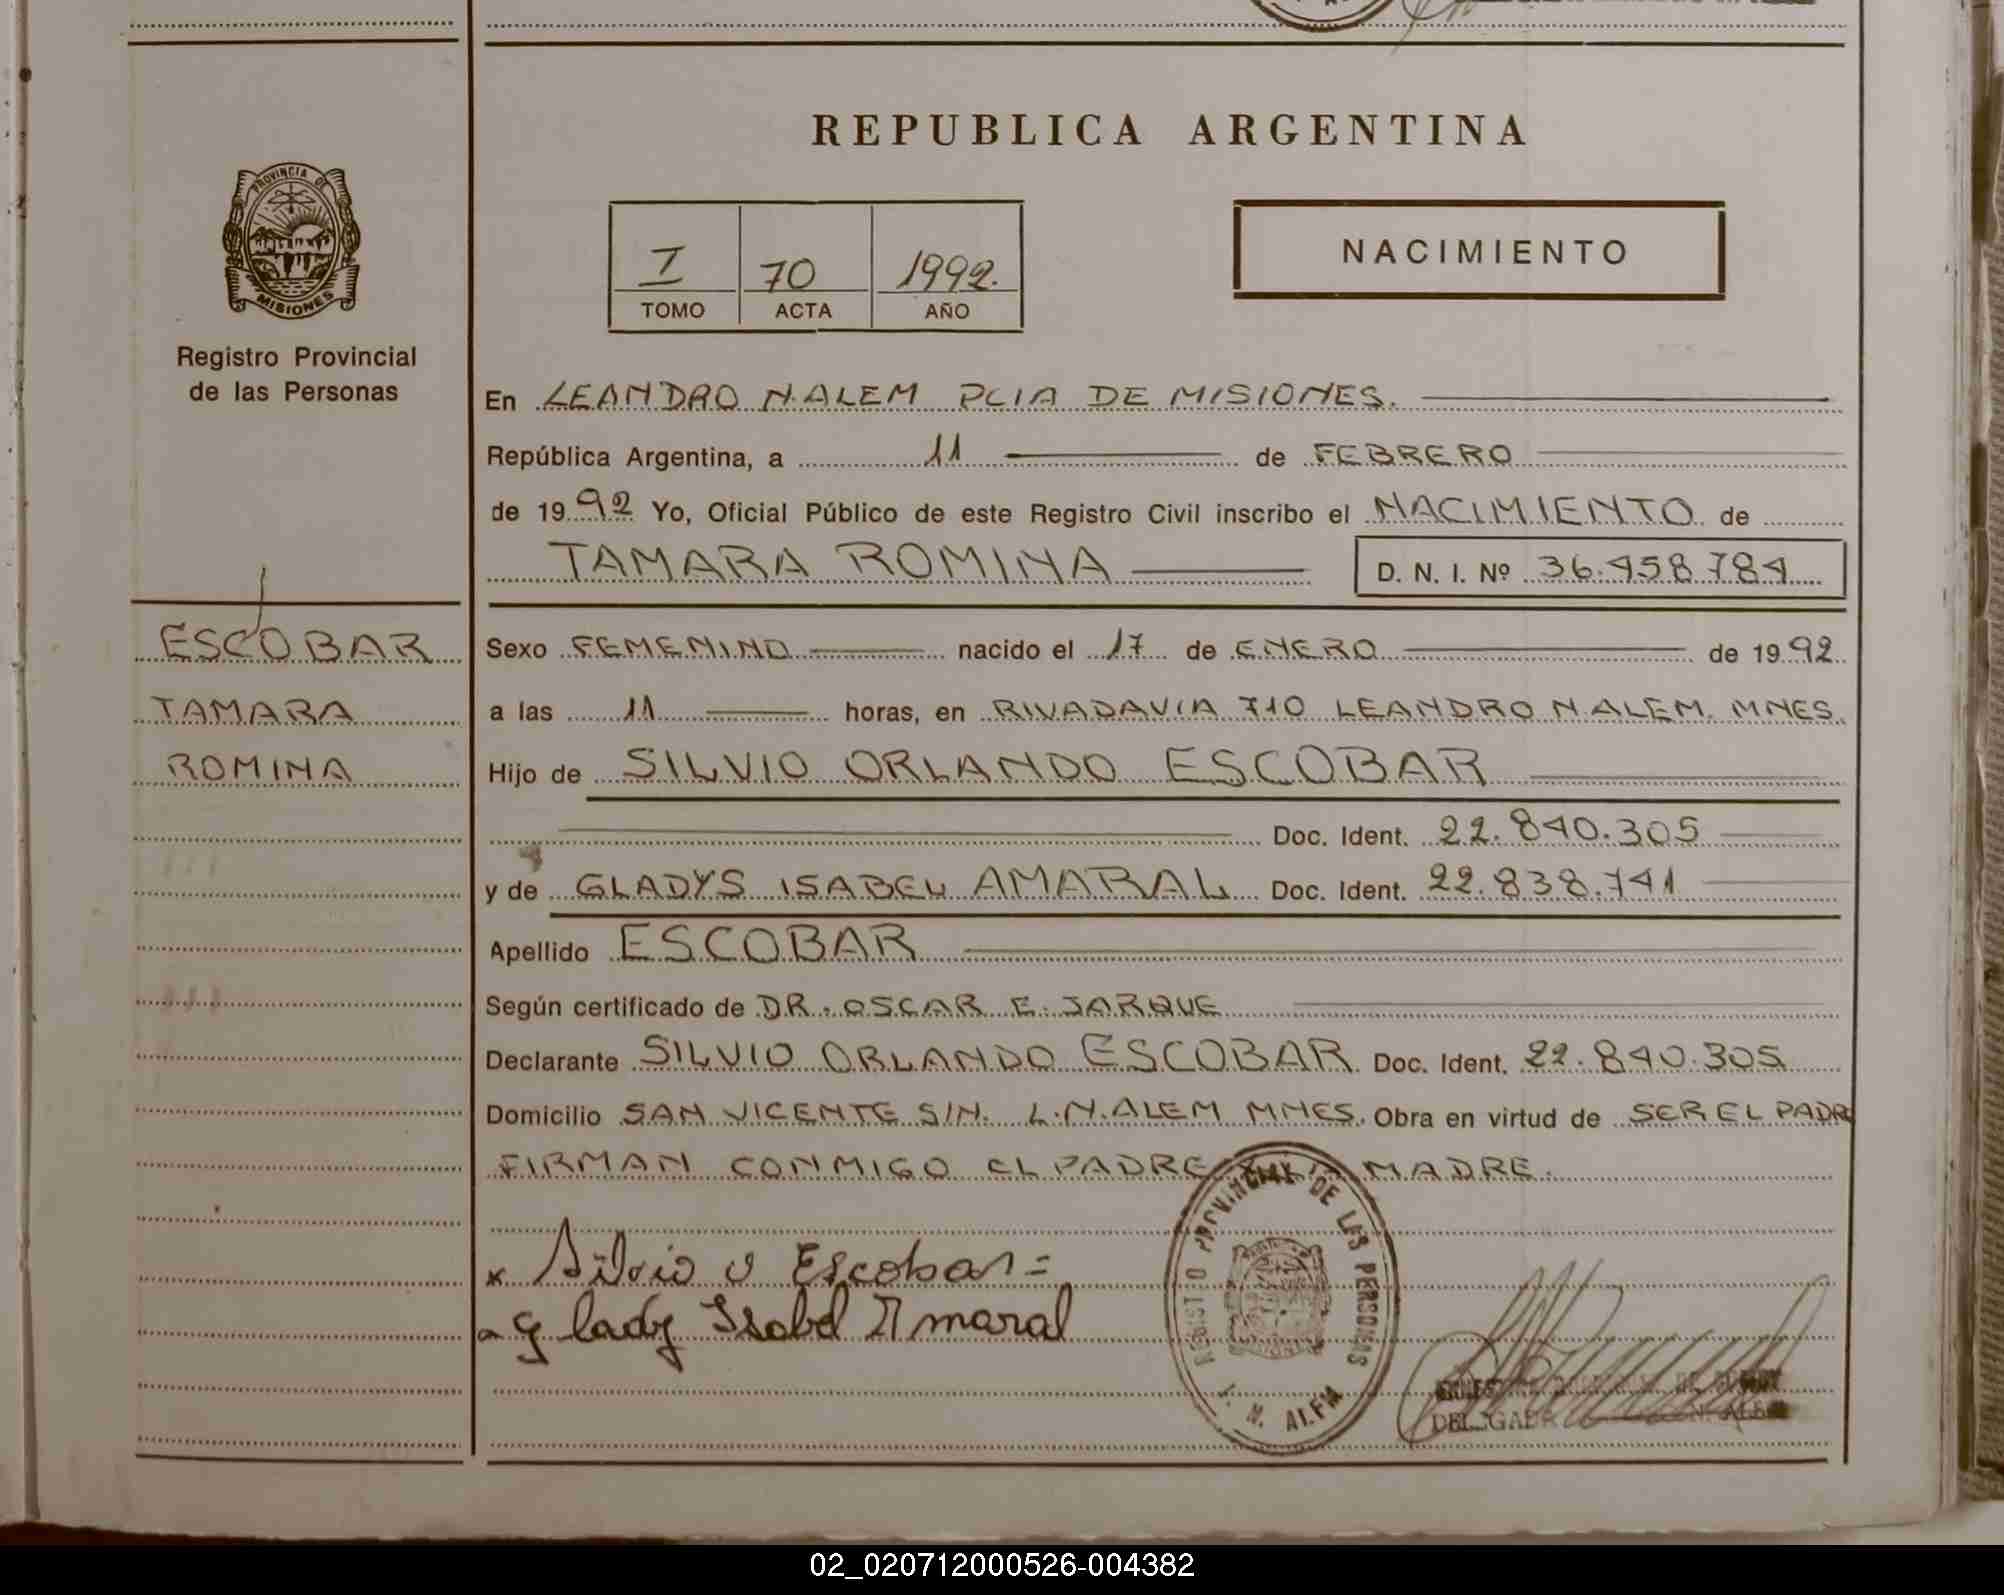 REPUBLICA ARGENTINA
PROVINCIA DE
MISIONES
Registro Provincial
de las Personas
I 70 1992.
TOMO ACTA AÑO
NACIMIENTO
En LEANDRO N.ALEM PCIA DE MISIONES.
República Argentina, a 11 de FEBRERO
de 1992 Yo, Oficial Público de este Registro Civil inscribo el NACIMIENTO de
TAMARA ROMINA D. N. I. Nº 36.458.784
ESCOBAR
TAMARA
ROMINA
Sexo FEMENINO nacido el 17 de ENERO de 1992
a las 11 horas, en RIVADAVIA 710 LEANDRO N.ALEM. MNES.
Hijo de SILVIO ORLANDO ESCOBAR
Doc. Ident. 22.840.305
y de GLADYS ISABEL AMARAL Doc. Ident. 22.838.741
Apellido ESCOBAR
Según certificado de DR. OSCAR E. JARQUE
Declarante SILVIO ORLANDO ESCOBAR Doc. Ident. 22.840.305
Domicilio SAN VICENTE S/N. L.N.ALEM MNES. Obra en virtud de SER EL PADRE
FIRMAN CONMIGO EL PADRE Y LA MADRE.
x Silvio O Escobar =
Glady Isabel Amaral
REGISTRO PROVINCIAL DE LAS PERSONAS
L. N. ALEM
02_020712000526-004382